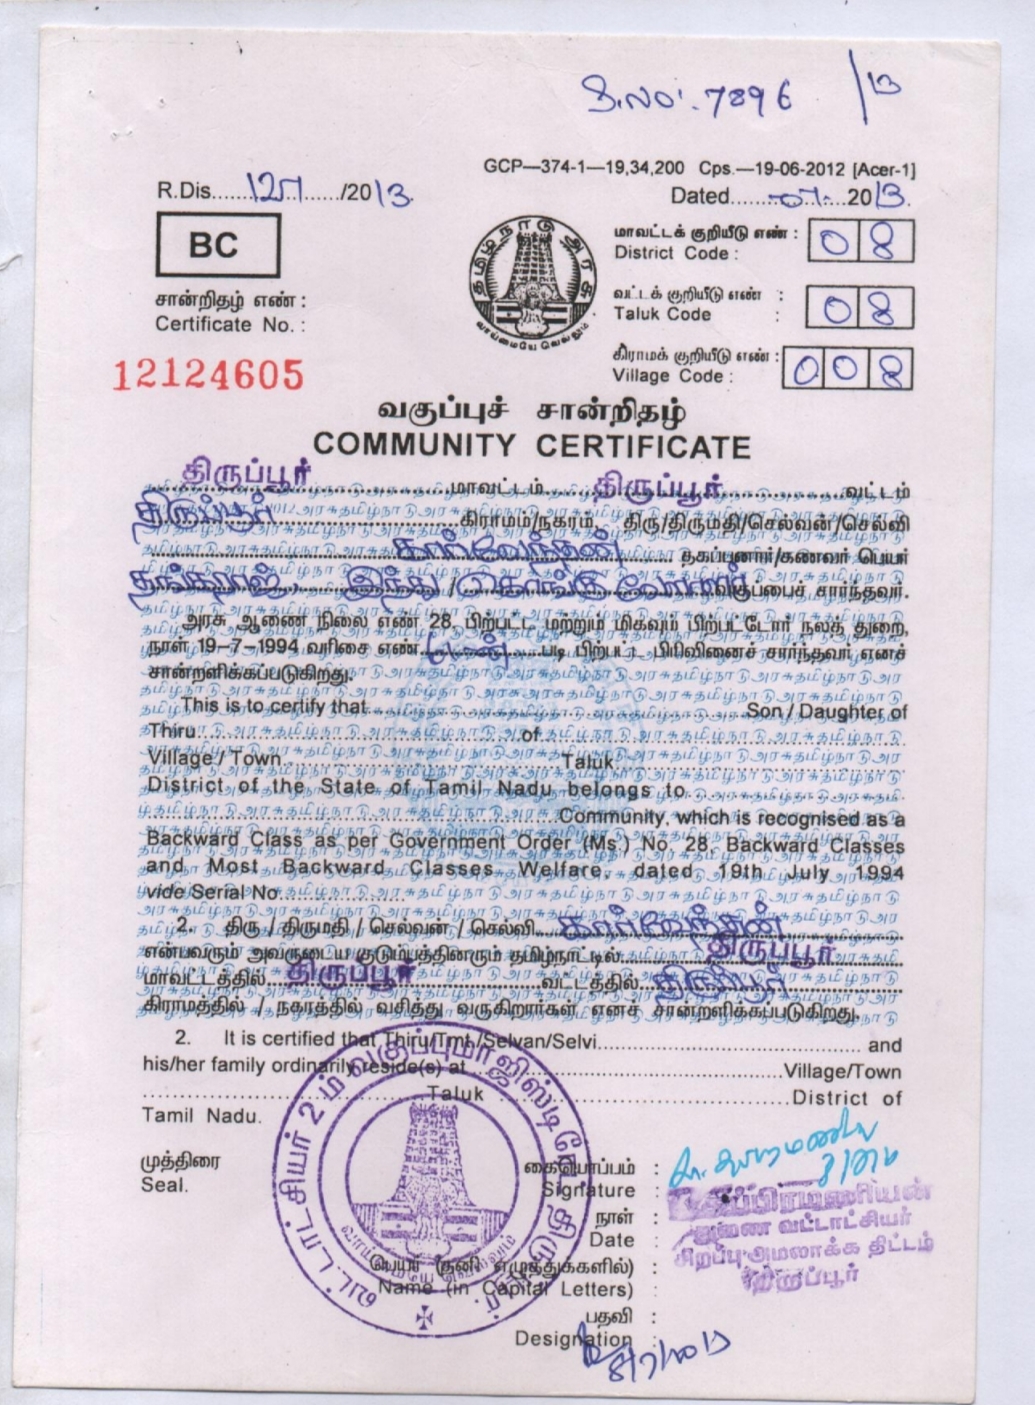 S.No: 7896 /13
GCP—374-1—19,34,200 Cps.—19-06-2012 [Acer-1]
R.Dis.................../2013. Dated..............2013.
BC
மாவட்டக் குறியீடு எண் : 0 8
District Code :
சான்றிதழ் எண் :
Certificate No. :
வட்டக் குறியீடு எண் : 0 8
Taluk Code :
கிராமக் குறியீடு எண் : 0 0 8
Village Code :
தமிழ்நாடு அரசு
வாய்மையே வெல்லும்
12124605
வகுப்புச் சான்றிதழ்
COMMUNITY CERTIFICATE
திருப்பூர் மாவட்டம் திருப்பூர் வட்டம்
திருப்பூர் கிராமம்/நகரம், திரு/திருமதி/செல்வன்/செல்வி
கார்வேந்தன் தகப்பனார்/கணவர் பெயர்
தங்கராஜ் இந்து / வகுப்பைச் சார்ந்தவர்.
அரசு ஆணை நிலை எண் 28, பிற்பட்ட மற்றும் மிகவும் பிற்பட்டோர் நலத் துறை,
நாள் 19–7–1994 வரிசை எண் படி பிற்பட்ட பிரிவினைச் சார்ந்தவர் எனச்
சான்றளிக்கப்படுகிறது.
This is to certify that.................... Son / Daughter of
Thiru....................of....................
Village / Town.................... Taluk....................
District of the State of Tamil Nadu belongs to
....................Community, which is recognised as a
Backward Class as per Government Order (Ms.) No. 28, Backward Classes
and Most Backward Classes Welfare, dated 19th July 1994
vide Serial No....................
2. திரு / திருமதி / செல்வன் / செல்வி கார்வேந்தன்
என்பவரும் அவருடைய குடும்பத்தினரும் தமிழ்நாட்டில் திருப்பூர்
மாவட்டத்தில் திருப்பூர் வட்டத்தில் திருப்பூர்
கிராமத்தில் / நகரத்தில் வசித்து வருகிறார்கள் எனச் சான்றளிக்கப்படுகிறது.
2. It is certified that Thiru/Tmt./Selvan/Selvi.................... and
his/her family ordinarily reside(s) at ....................Village/Town
....................Taluk ....................District of
Tamil Nadu.
முத்திரை
Seal.
கையொப்பம் :
Signature :
நாள் :
Date :
பெயர் (தனி எழுத்துக்களில்) :
Name (in Capital Letters) :
பதவி :
Designation :
வட்டாட்சியர் 2ம் வகுப்புமாஜிஸ்டிரேட் திருப்பூர்.
வாய்மையே வெல்லும்
சுப்பிரமணியன்
துணை வட்டாட்சியர்
சிறப்பு அமலாக்க திட்டம்
திருப்பூர்